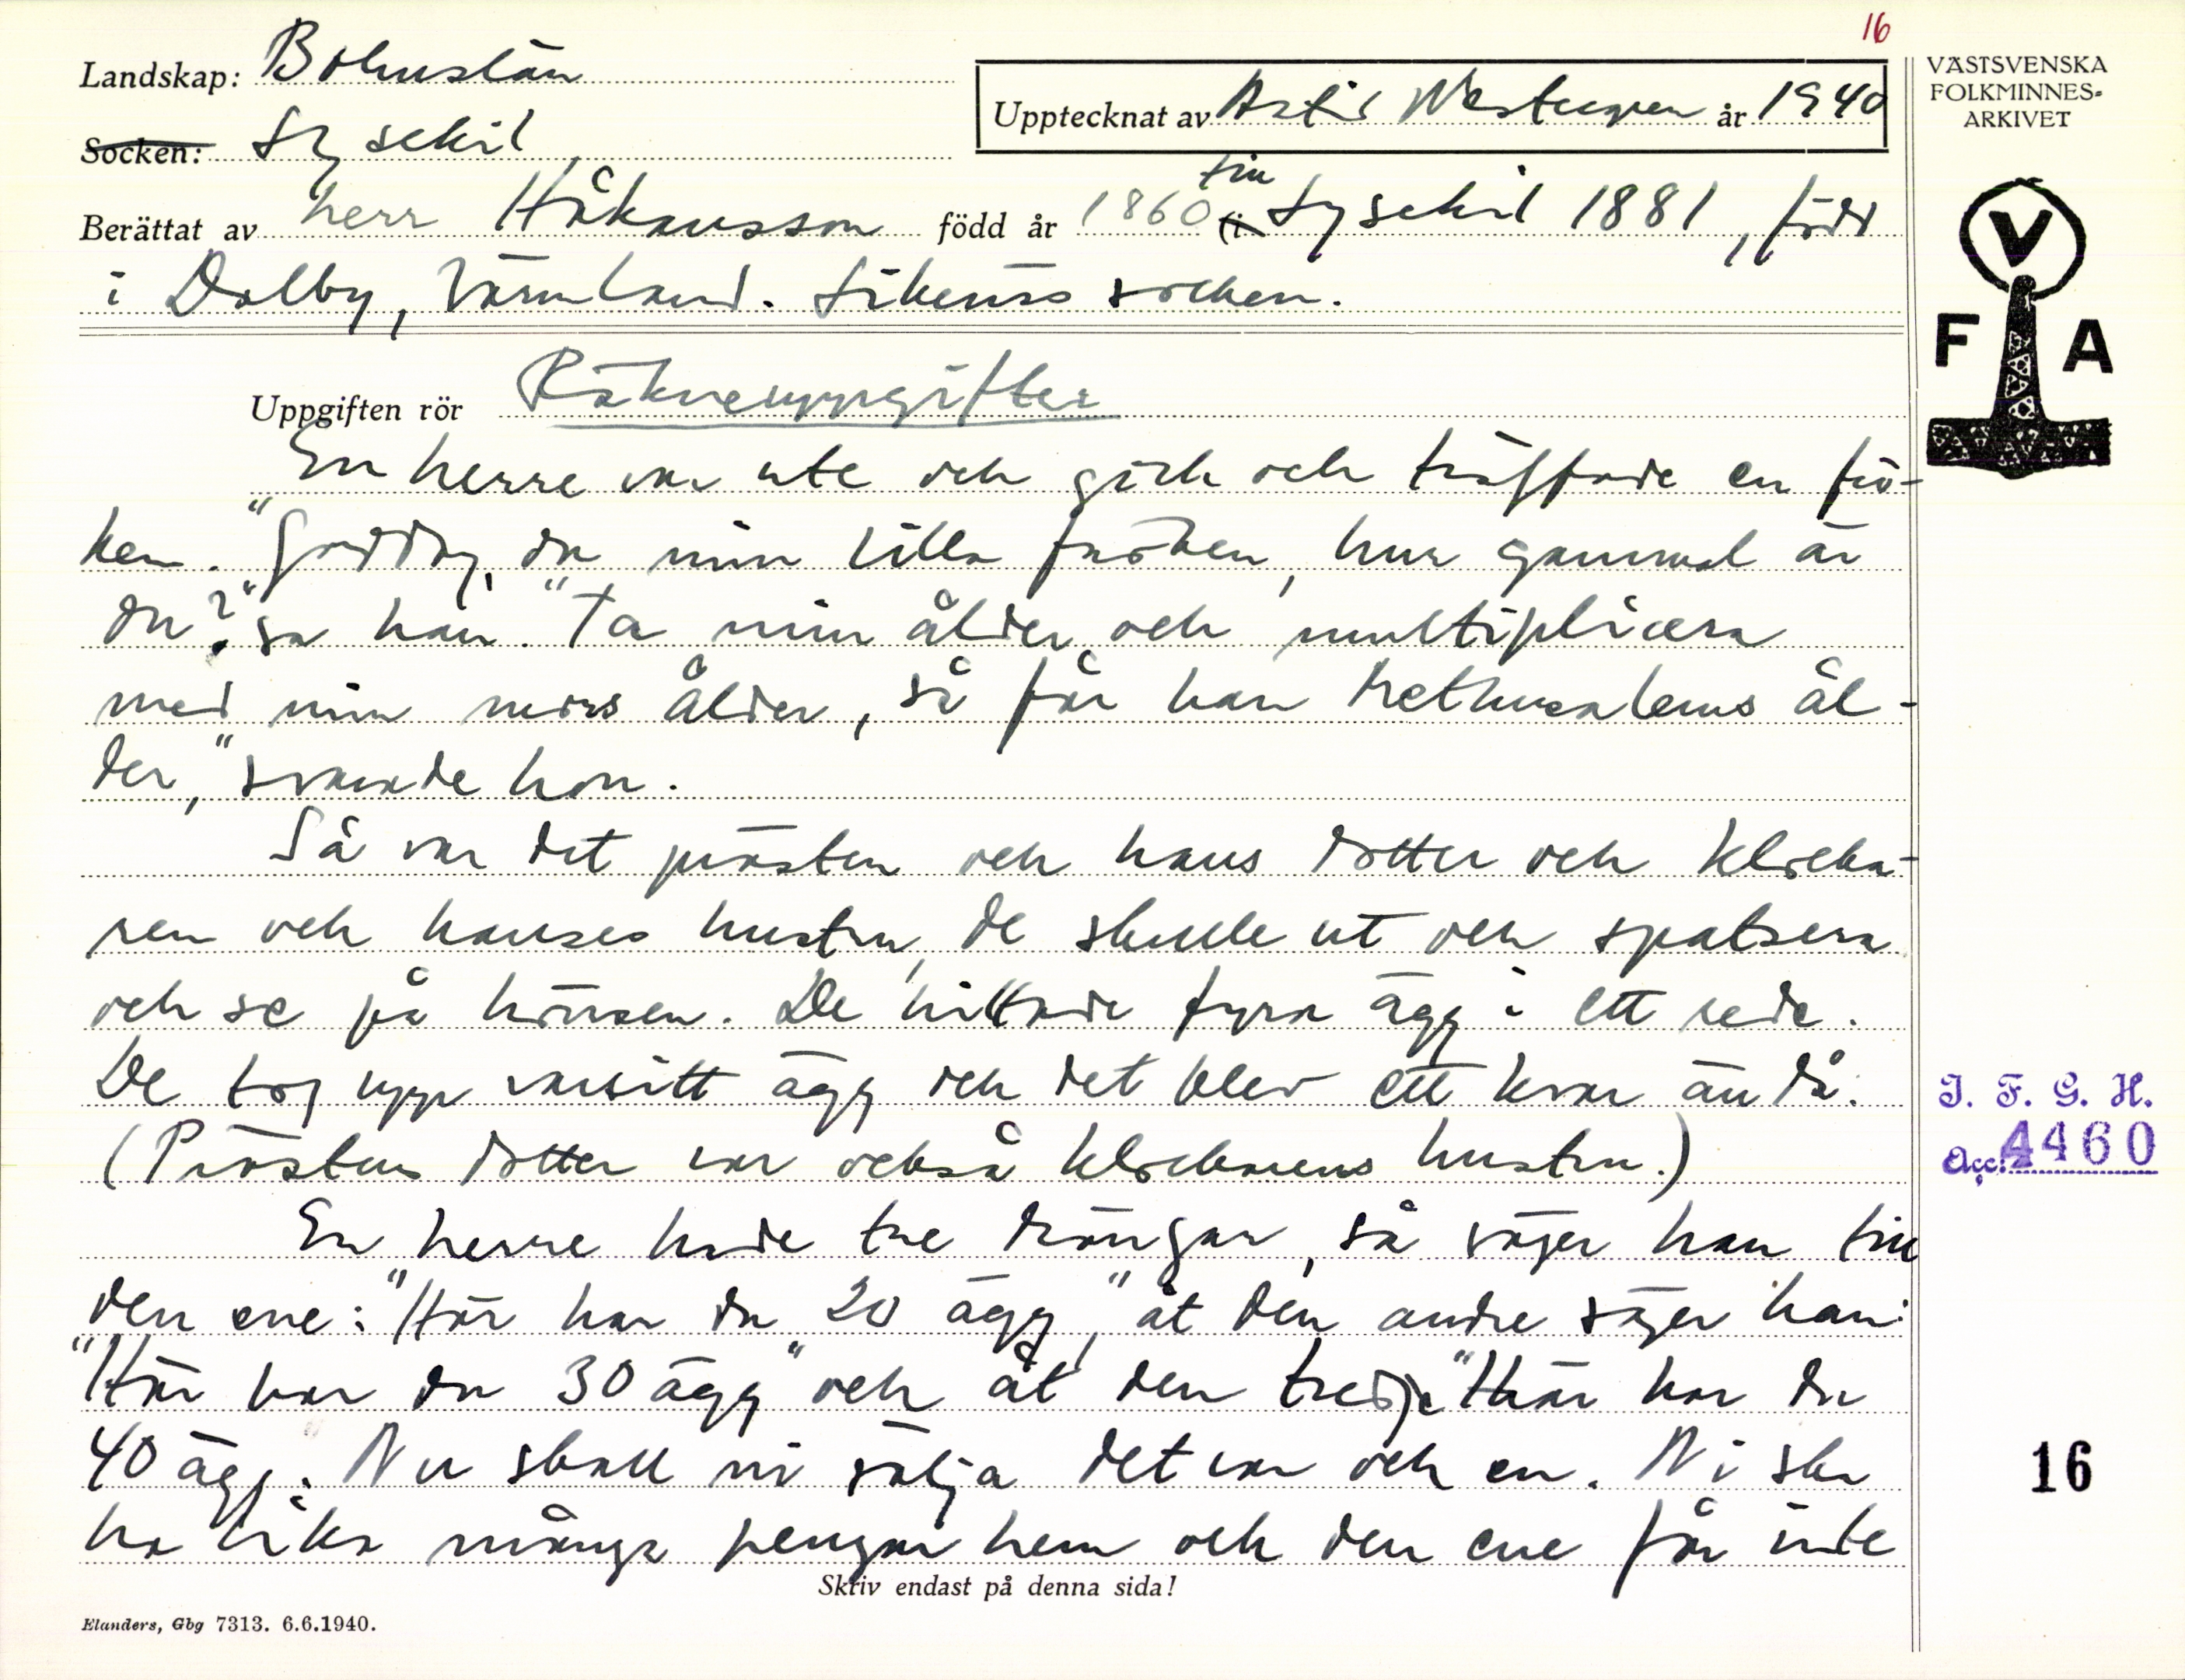 16
Landskap: Bohuslän
Socken: Lysekil
Upptecknat av Astis Westergren år 1940
Berättat av herr Håkansson född år 1860 (i till Lysekil 1881, född
i Dalby, Värmland. Likenäs socken.
Uppgiften rör Räkneuppgifter
En herre var ute och gick och träffade en frö-
ken. "Goddag, du min lilla fröken, hur gammal är
du?" sa han. "Ta min ålder och multiplicera
med min mors ålder, så får han Methusalems ål-
der," svarade hon.
Så var det prästen och hans dotter och klocka-
ren och hanses hustru, de skulle ut och spatsera
och se på hönsen. De hittade fyra ägg i ett rede.
De tog upp varsitt ägg och det blev ett kvar ändå.
(Prästens dotter var också klockarens hustru.)
En herre hade tre drängar, så säger han till
den ene: "Här har du 20 ägg," åt den andre säger han:
"Här har du 30 ägg" och åt den tredje "Här har du
40 ägg. Nu skall ni sälja det var och en. Ni ska
ha lika många pengar hem och den ene får inte
Skriv endast på denna sida!
Elanders, Gbg 7313. 6.6.1940.
VÄSTSVENSKA
FOLKMINNES-
ARKIVET
V
F A
I. F. G. H.
Acc. 4460
16